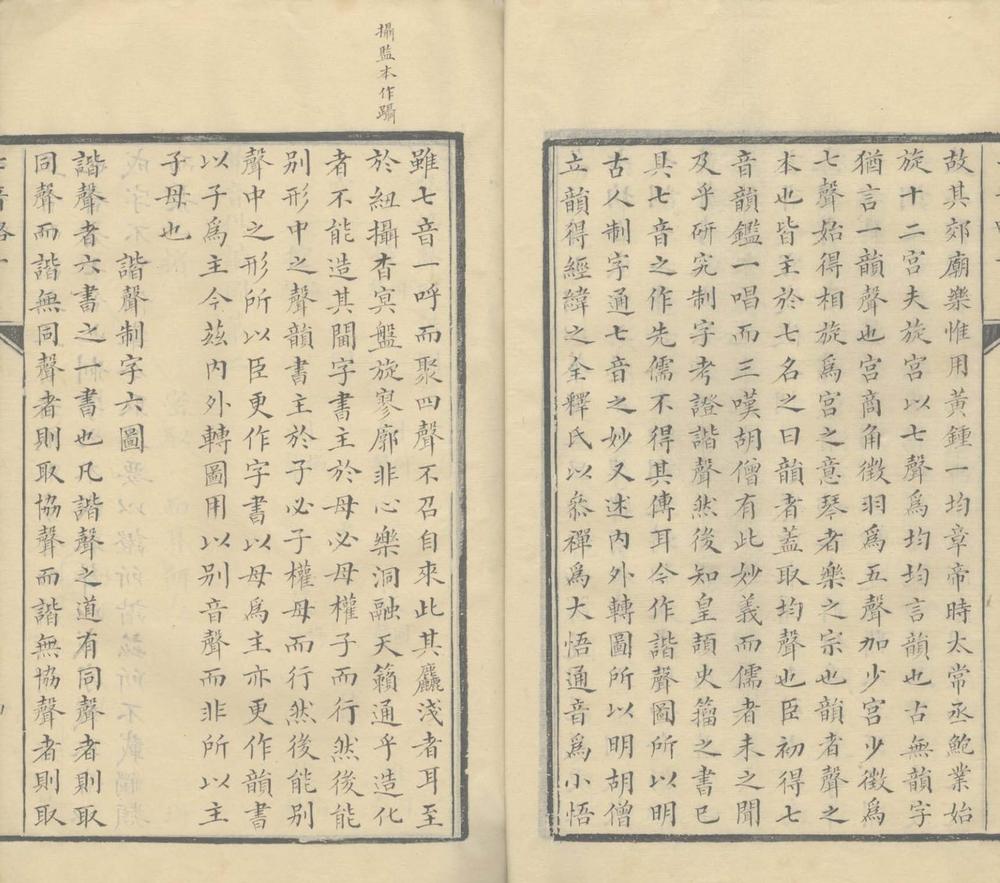 故其郊廟樂惟用黃鍾一均章帝時太常丞鮑業始
旋十二宮夫旋宮以七聲爲均均言韻也古無韻字
猶言一韻聲也宮商角徵羽爲五聲加少宮少徵爲
七聲始得相旋爲宮之意琴者樂之宗也韻者聲之
本也皆主於七名之曰韻者蓋取均聲也臣初得七
音韻鑑一唱而三嘆胡僧有此妙義而儒者未之聞
及乎研究制字考證諧聲然後知皇頡史籀之書已
具七音之作先儒不得其傳耳今作諧聲圖所以明
古人制字通七音之妙又述內外轉圖所以明胡僧
立韻得經緯之全釋氏以叅禪爲大悟通音爲小悟
攝監本作躡
雖七音一呼而聚四聲不召自來此其麤淺者耳至
於紐攝杳㝠盤旋寥廓非心樂洞融天籟通乎造化
者不能造其閫字書主於母必母權子而行然後能
別形中之聲韻書主於子必子權母而行然後能別
聲中之形所以臣更作字書以母爲主亦更作韻書
以子爲主今茲內外轉圖用以別音聲而非所以主
子母也
諧聲制字六圖
諧聲者六書之一書也凡諧聲之道有同聲者則取
同聲而諧無同聲者則取協聲而諧無協聲者則取